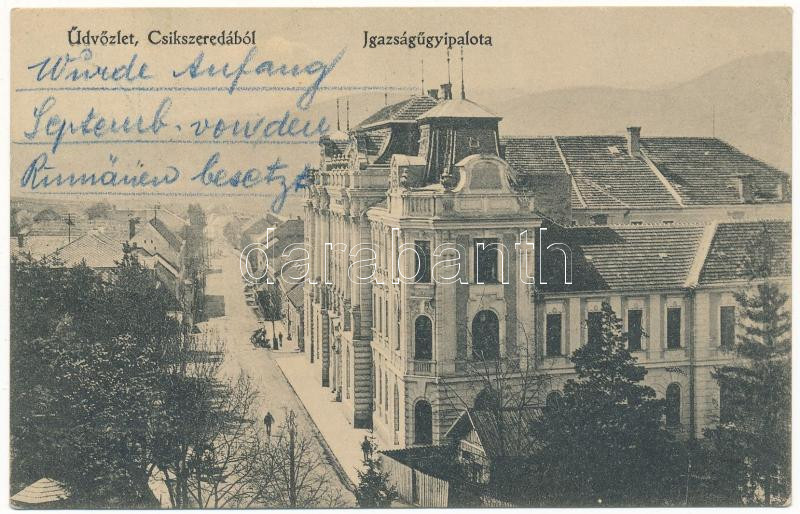 Üdvözlet, Csikszeredából Jgazságügyipalota
Wurde Anfang
Septemb. von den
Rumänien besetzt
darabanth